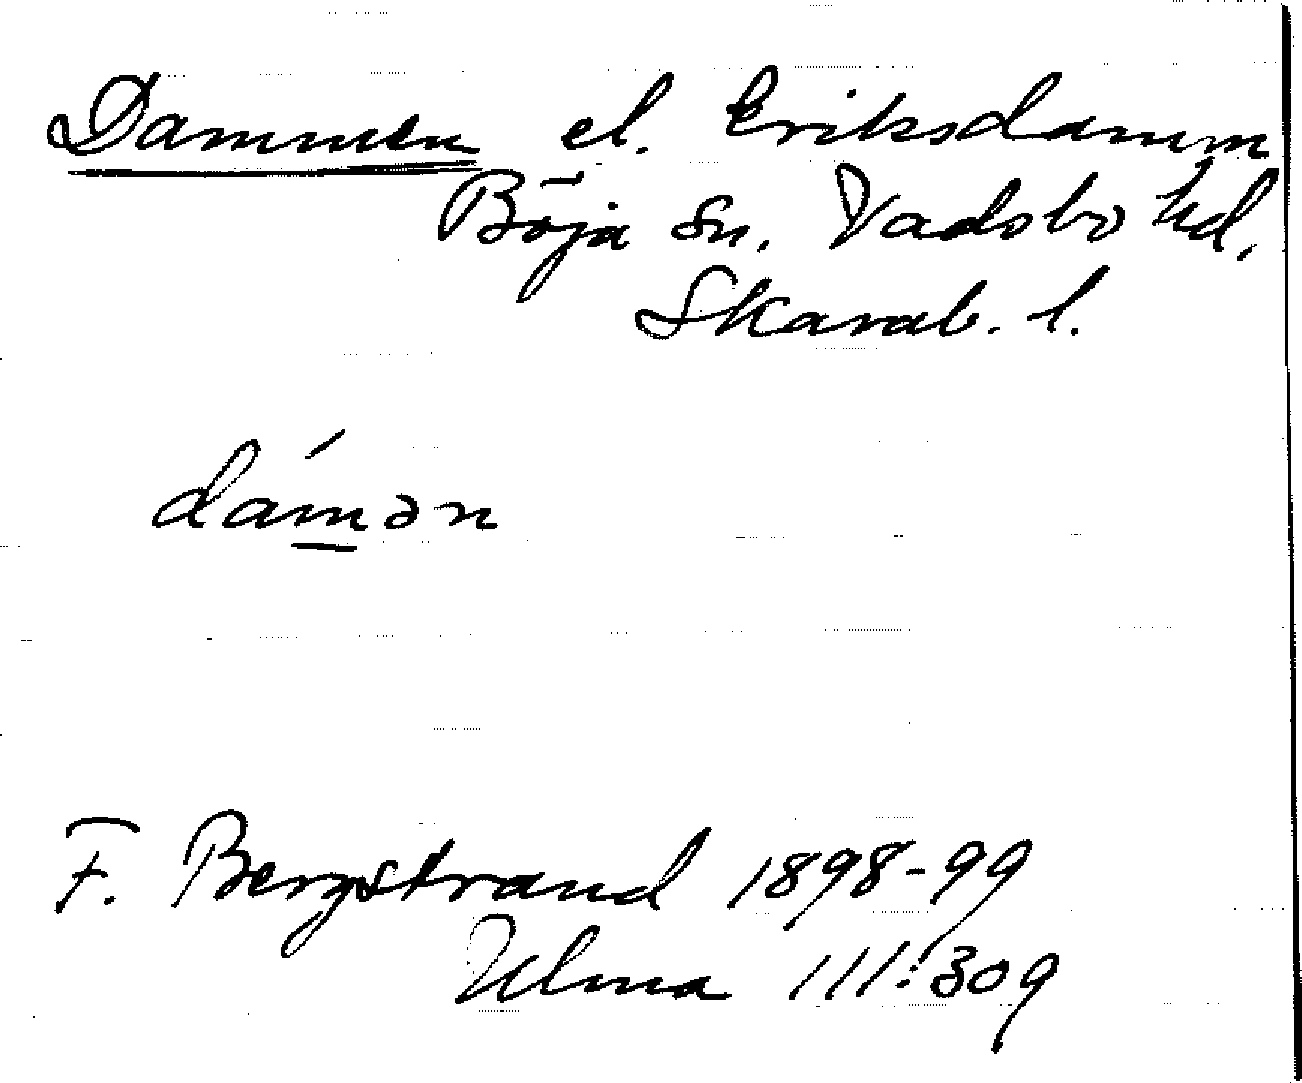 Dammen el. Eriksdamm
Böja sn. Vadsbo hd.
Skarab. l.
dám̲ən
F. Bergstrand 1898-99
Ulma 111:309